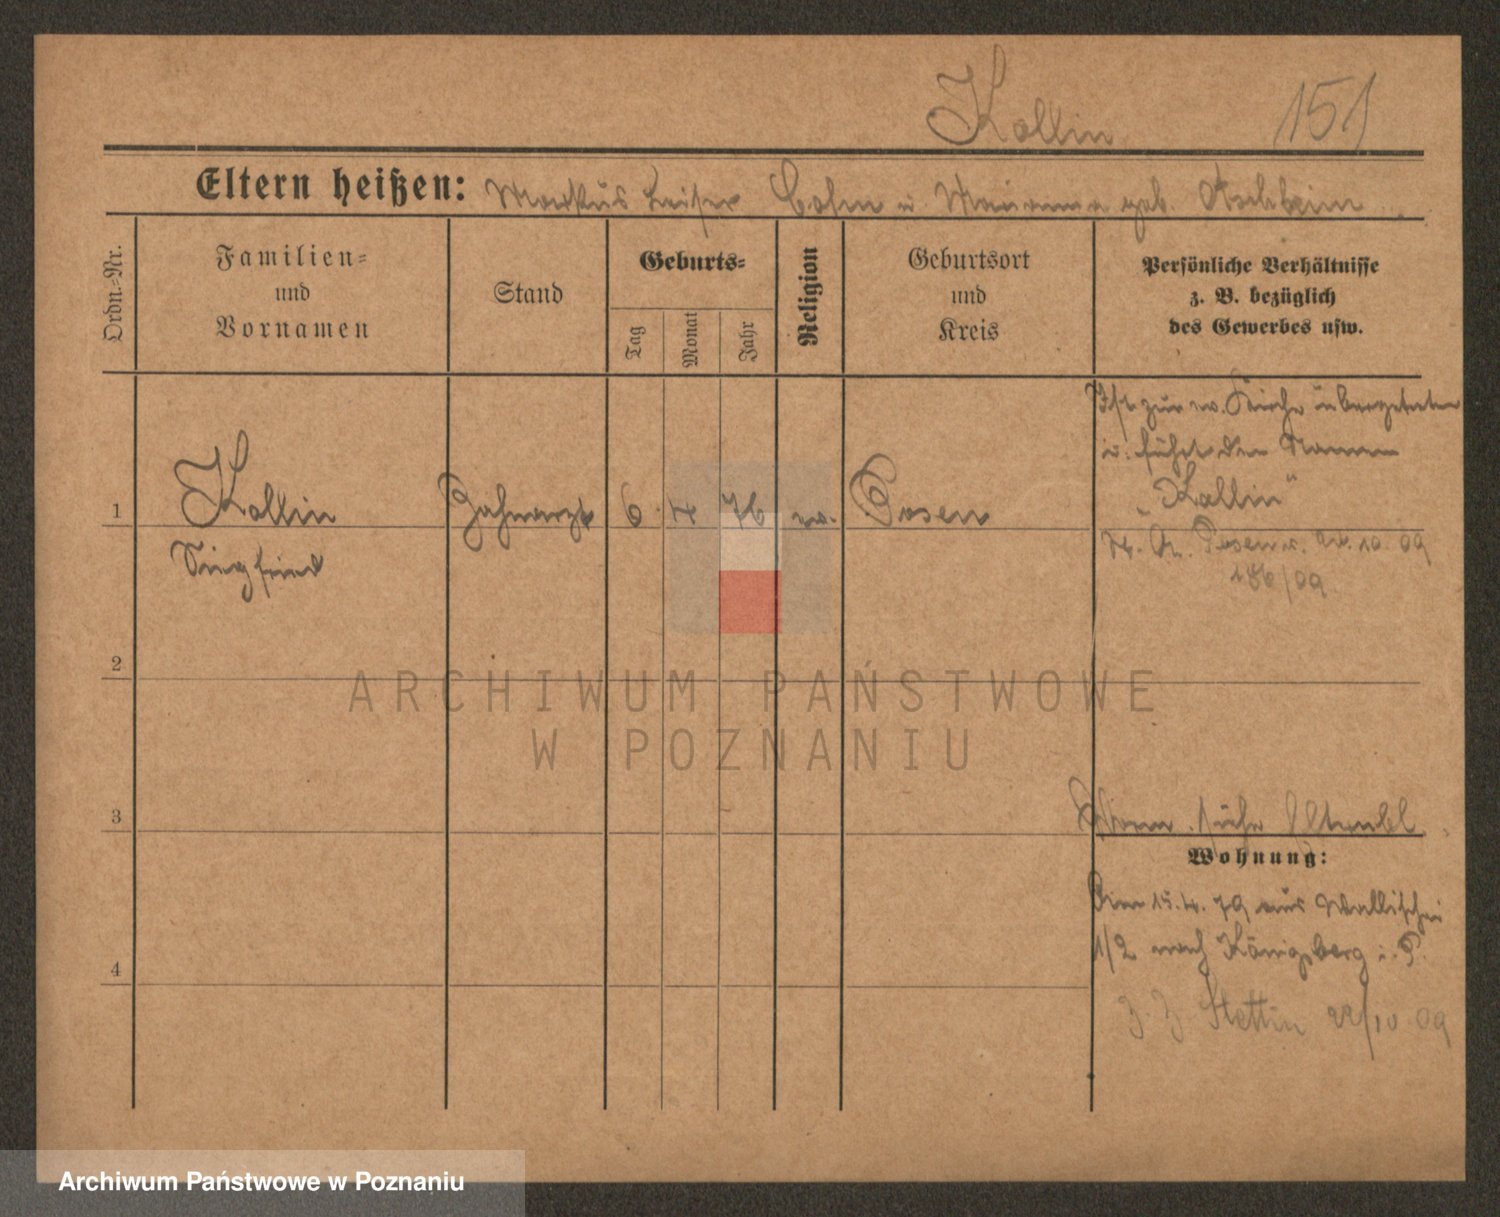 Kollin 151
Eltern heißen: Markus Leiser Cohn u. Marianna geb. Aschheim
Ordn.-Nr.
Familien-
und
Vornamen
Stand
Geburts-
Tag
Monat
Jahr
Religion
Geburtsort
und
Kreis
Persönliche Verhältnisse
z. B. bezüglich
des Gewerbes usw.
Ist zur ev. Kirche übergetreten
u. führt den Namen
„Kollin"
1 Kollin Zahnarzt 6 4 76 ev. Posen
Siegfried
Posen v. 10. 09
186/09
2
3
siehe
Wohnung:
15.4.79 aus Wallischei
1/2 nach Königsberg i. P.
4
Z. Z. Stettin 22/10 09
ARCHIWUM PAŃSTWOWE
W POZNANIU
Archiwum Państwowe w Poznaniu